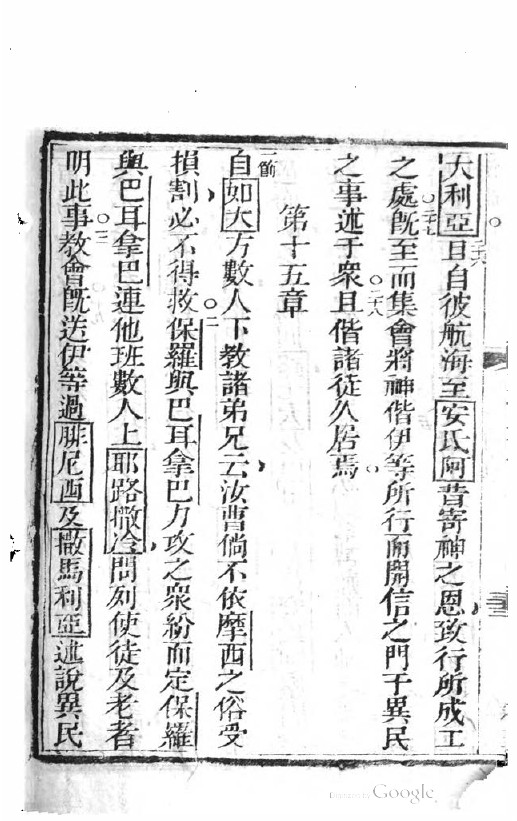 大利亞二六且自彼航海至安氏阿昔寄神之恩致行所成工
之處二七既至而集會將神偕伊等所行而開信之門于異民
之事述于衆二八且偕諸徒久居焉
第十五章
一節自如大方數人下教諸弟兄云汝曹倘不依摩西之俗受
損割必不得救二保羅與巴耳拿巴力攻之衆紛而定保羅
與巴耳拿巴連他班數人上耶路撒冷問列使徒及老者
明此事三教會既送伊等過腓尼西及撒馬利亞述說異民
Digitized by Google